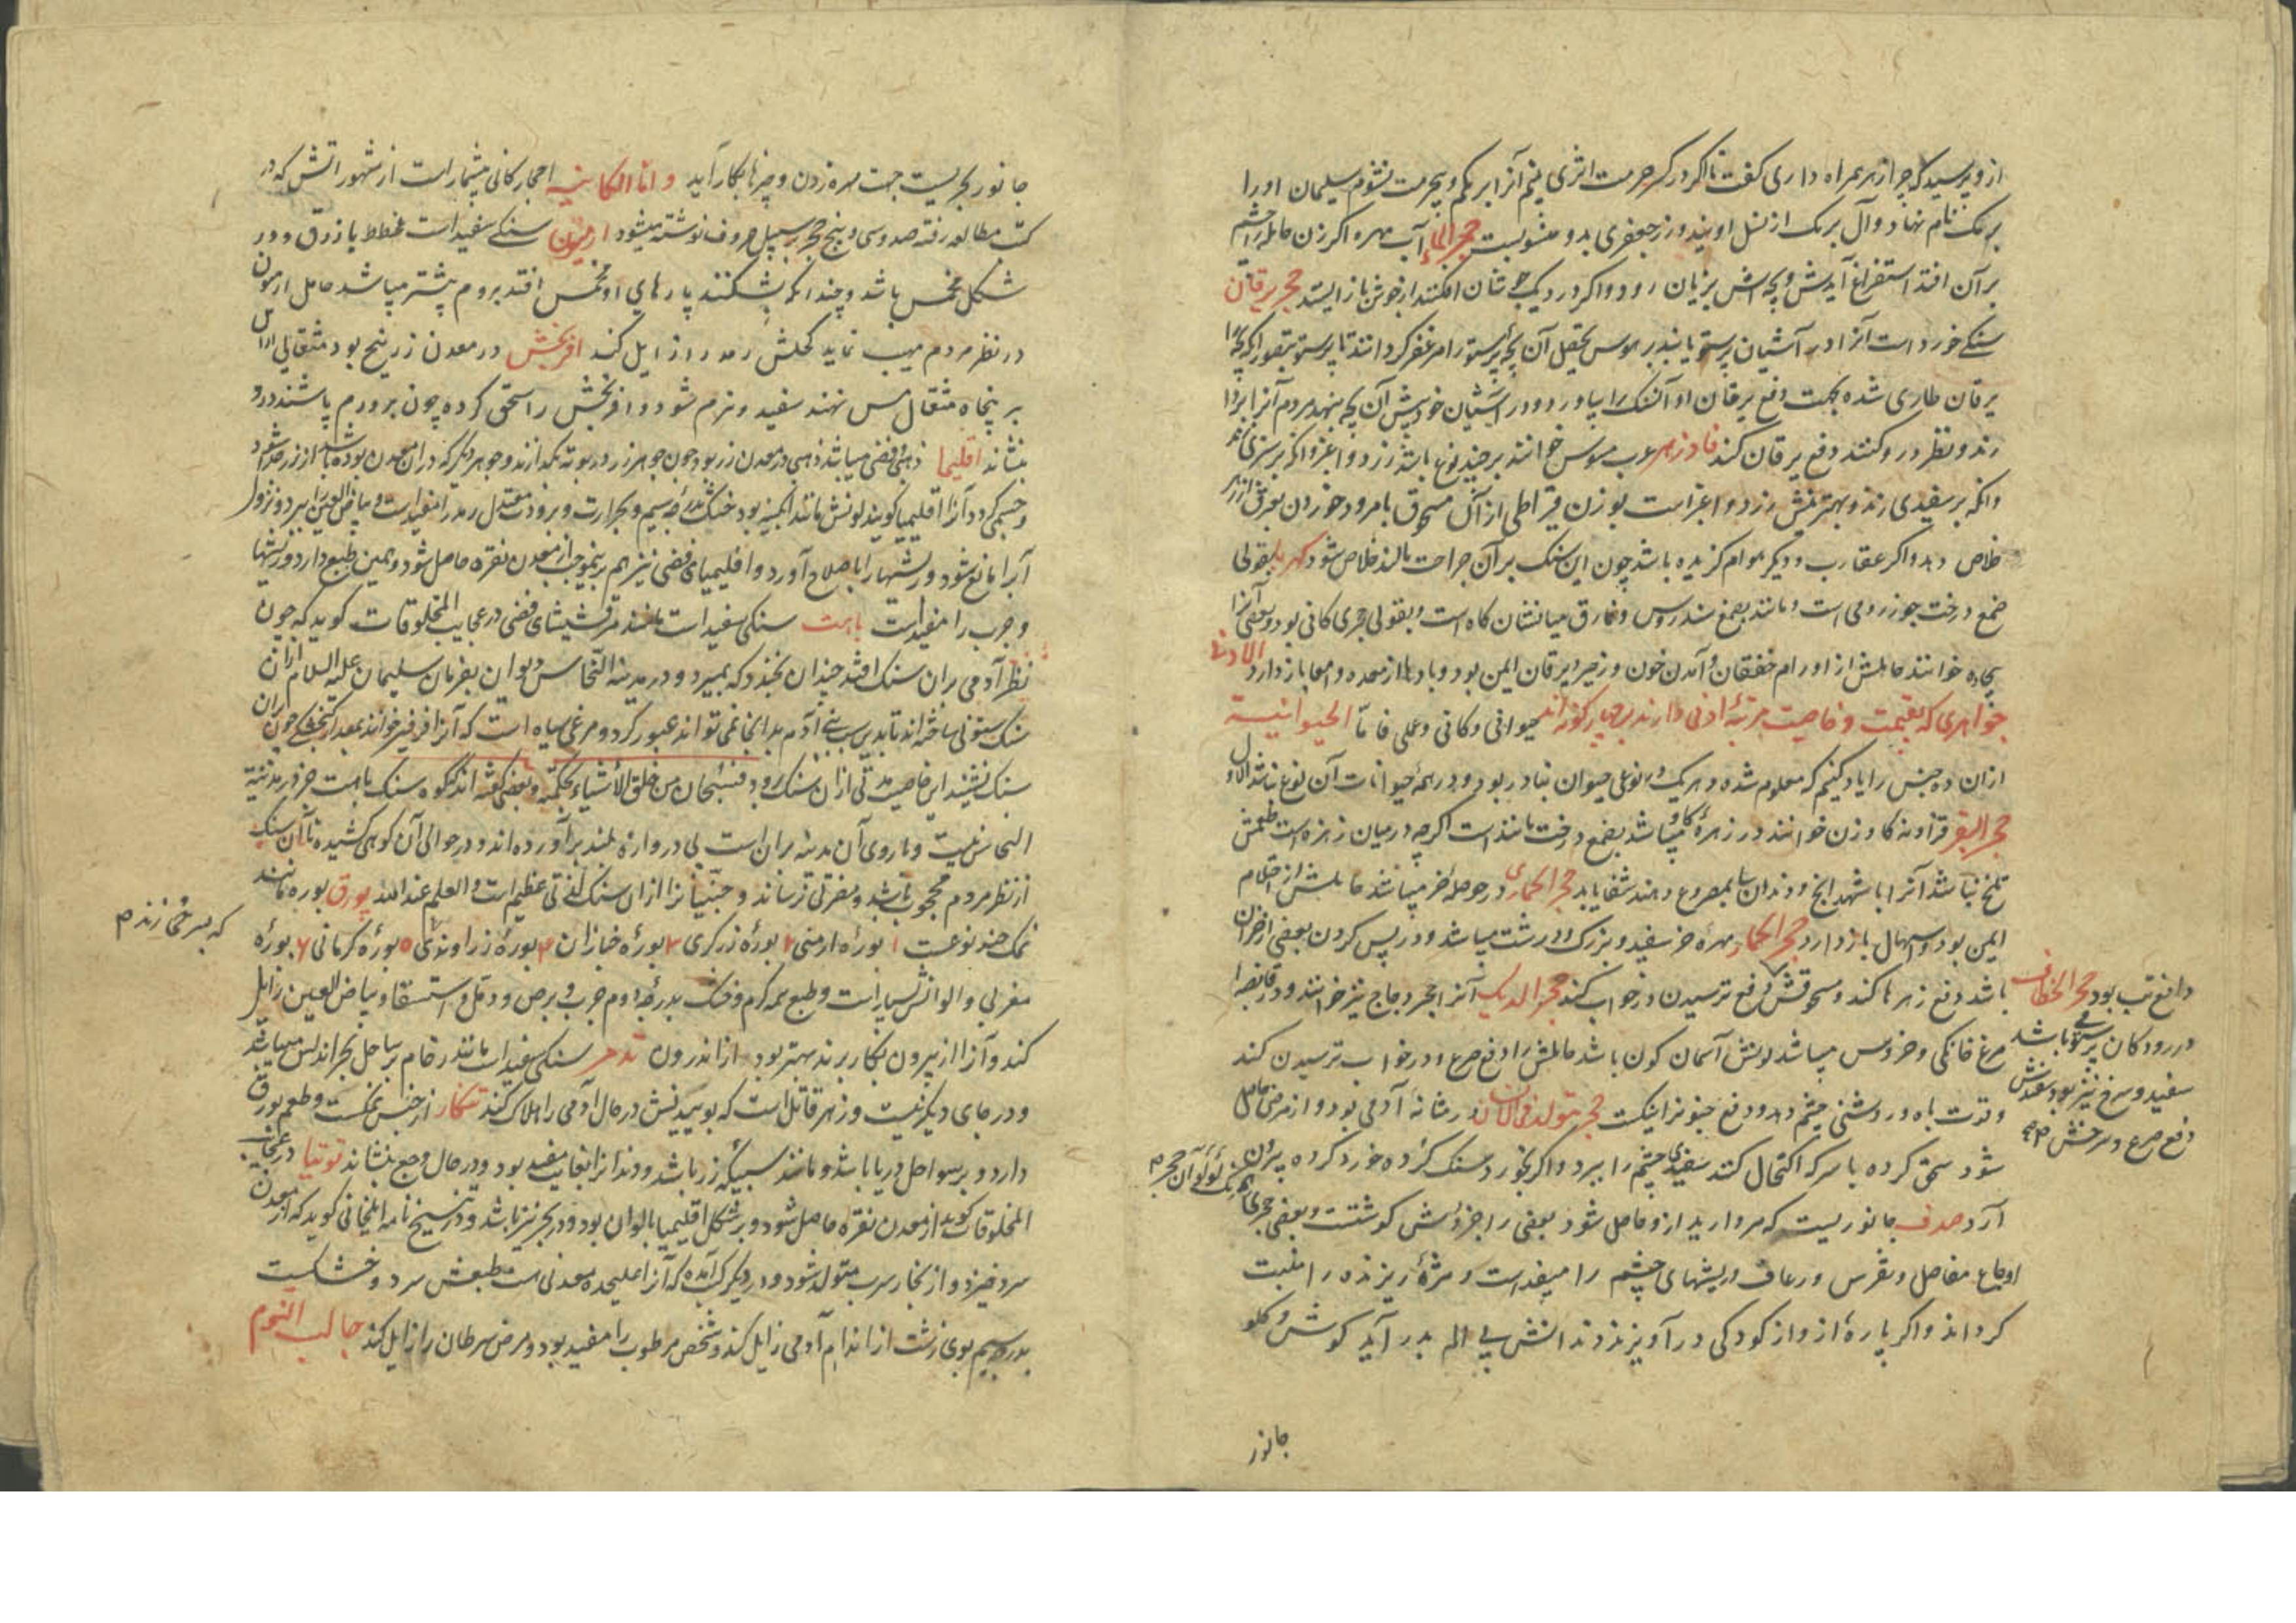 از و پرسید که چرا زهر همراه داری کفت تا اکر درکر حرمت اثری بینم آنرا برمکم و بیحرمت نشوم سلیمان او را
برمک نام نهاد و آل برمک از نسل اویند و زر جعفری بدو منسوبست حجر الماء آب مهره اکر زن حامله را چشم
بر آن افتد استفراغ آیدش و بچه اش بزیان رود و اکر در دیک جوشان افکنند از جوش باز ایستد حجر یرقان
سنکی خورد است آنرا در آشیان پرستو یابند بر هوس تحصیل آن بچه پرستو را مزعفر کردانند تا پرستو بتصور آنکه بچه را
یرقان طاری شده بجهت دفع یرقان او آن سنک را بیاورد و در آشیان خود پیش آن بچه بنهد مردم آنرا بردارند
و نظر در و کنند دفع یرقان کند فادزهر عرب مسوس خوانند بر چند نوع باشد زرد و اغبر و آنکه بر سبزی زند
و آنکه بر سفیدی زند و بهترینش زرد و اغبر است بوزن قیراطی از آن مسحوق با مرود خوردن بعرق از زهر
خلاص دهد و اکر عقارب و دیکر هوام کزیده باشد چون این سنک بر آن جراحت مالند خلاص شود کهربا بقولی
صمغ درخت جوز رومی است و مانند بصمغ سندروس و فارق میانشان کاه است و بقولی حجری کانی بود و بعضی آنرا
بیجاده خوانند حاملش از اورام خفقان و آمدن خون و زحیر و یرقان ایمن بود و بادها از معده و امعا باز دارد الادنی
جواهری که بقیمت و خاصیت مرتبه ادنی دارند بر چهار کونه اند حیوانی و کانی و عملی فامّا الحیوانیة
از آن ده جنس را یاد کنیم که معلوم شده و هر یک در نوعی حیوان بنادر بود و در همه حیوانات آن نوع نباشد الاول
حجر البقر قزاونه کاو زن خوانند در زهره کاو میباشد بصمغ درخت مانند است اکرچه در میان زهره است طعمش
تلخ نباشد آنرا با شهد آنج و دندان سا بمصروع دهند شفا یابد حجر الحماری در حوصله خر میباشد حاملش از احتلام
ایمن بود و اسهال باز دارد حجر الحمار مهره خر سفید و بزرک و درشت میباشد و در پس کردن بعضی از خران
باشد دفع زهرها کند و مسحوقش دفع ترسیدن در خواب کند حجر الدیک آنرا حجر دجاج نیز خوانند و در قانصه
مرغ خانکی و خروس میباشد لونش آسمان کون باشد حاملش را دفع صرع و در خواب ترسیدن کند
و قوت باه و روشنی چشم دهد و دفع جنون را نیکست حجر متولد فی الانسان در مثانه آدمی بود و از مرض حاصل
شود سحق کرده با سرکه اکتحال کنند سفیدی چشم را ببرد و اکر بخورد سنک کرده خورد کرده بیرون
آرد صدف جانوریست که مروارید از و حاصل شود بعضی را جزوش کوشتست و بعضی حجری
اوجاع مفاصل و نقرس و رعاف و ریشهای چشم را مفید است و مژه ریزنده را منبت
کرداند و اکر پاره از و از کودکی در آویزند دندانش بی الم بدر آید کوش و کلو
دافع تب بود حجر الخطاف
در رودکان پرستو باشد
سفید و سرخ نیز بود سفیدش
دفع صرع و سرخش
جانور
جانور بحریست جهت مهره زدن و چیزها بکار آید و امّا الکانیه احجار کانی بیشمار است از شهور آتش که در
کتب مطالعه رفته صد و سی و پنج حجر بر سبیل حروف نوشته میشود ارمیون سنکی سفید است مخطط با زرق و در
شکل مخمس باشد و چندانکه بشکنند پارهای او مخمس افتد بروم بیشتر میباشد حامل ارمیون
در نظر مردم مهیب نماید کحلش رمد را زایل کند افربخش در معدن زرنیخ بود مثقالی از آن
بر پنجاه مثقال مس نهند سفید و نرم شود و افربخش را سحق کرده چون بر ورم پاشند درد
بنشاند اقلیمیا ذهبی و فضی میباشد ذهبی در معدن زر بود چون جوهر زر در بوته بکدازند و جوهر دیکر که در آن معدن بوده باشد از زر جدا شود
و جسمی کردد آنرا اقلیمیا کویند لونش مانند آبکینه بود خشک بدرجه سیم و بحرارت و برودت معتدل رمد را مفید است و بیاض العین را ببرد و نزول
آب را مانع شود و ریشها را باصلاح آورد و اقلیمیای فضی نیز هم برینموجب از معدن نقره حاصل شود و همین طبع دارد و ریشها
و جرب را مفید است باهت سنکی سفید است مانند مرقشیشای فضی در عجایب المخلوقات کوید که چون
نظر آدمی بر آن سنک افتد چندان بخندد که بمیرد و در مدینة النحاس دیوان بفرمان سلیمان علیه السلام از آن
سنک ستونی ساخته اند تا بدین سبب بنی آدم بدانجا نمی تواند عبور کرد و مرغی سیاه است که آنرا فرفیر خوانند بمقدار کنجشکی چون بر آن
سنک نشیند این خاصیت مدتی از آن سنک برود فسبحان من خلق الاشیاء بحکمته و بعضی کفته اند که کوه سنک باهت جز در مدینة
النحاس نیست و باروی آن مدینه بر آن است بی دروازه بلند بر آورده اند و در حوالی آن کوهی کشیده تا آن سنک
از نظر مردم محجوب باشد و مضرتی نرساند و جنّیانرا از آن سنک آفتی عظیم است والعلم عند الله بورق بوره مانند
نمک چند نوعست ۱ بوره ارمنی ۲ بوره زرکری ۳ بوره خبازان ۴ بوره زراوندی ۵ بوره کرمانی ۶ بوره
مغربی و الوانش بسیار است و طبع همه کرم و خشک بدرجه دوم جرب و برص و دمل و استسقا و بیاض العین زایل
کند و آنرا از بیرون بکار برند بهتر بود از اندرون تدمر سنکی سفید است مانند رخام بر ساحل بحر اندلس میباشد
و در جای دیکر نیست و زهر قاتل است که بوییدنش در حال آدمی را هلاک کند تنکار از جنس نمکست و طعم بورق
دارد و بر سواحل دریا باشد و مانند سبیکه زر باشد و دندانرا بغایت مفید بود و در حال وجع بنشاند توتیا در عجایب
المخلوقات کوید از معدن نقره حاصل شود و بر شکل اقلیمیا بالوان بود و در بحر نیز باشد و در تنسیخ نامه ایلخانی کوید که از معدن
سرد خیزد و از بخار سرب متولد شود و در دیکر کتب آمده که آنرا علیحده معدنی هست طبعش سرد و خشکست
بدرجه سیم بوی زشت از اندام آدمی زایل کند و شخص مرطوب را مفید بود و مرض سرطان را زایل کند جالب النوم
که بسرخی زند